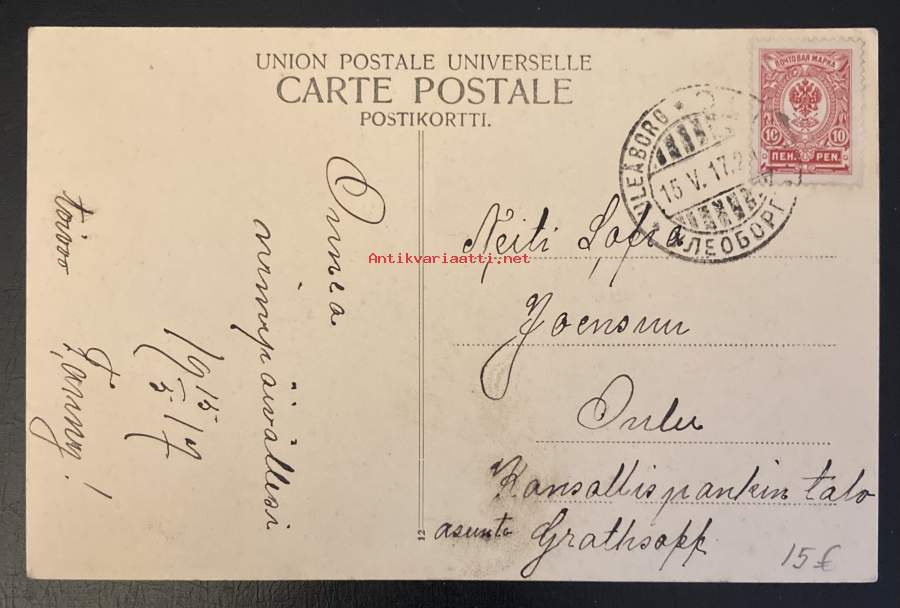 UNION POSTALE UNIVERSELLE
CARTE POSTALE
POSTIKORTTI.
ПОЧТОВАЯ МАРКА
10 10
ПЕН. PEN.
ULEÅBORG
15. V. 17.
УЛЕОБОРГ
Antikvariaatti.net
Onnea
nimipäivällesi
19 15/5 17
toivoo
Fanny!
Neiti Sofia
Joensuu
Oulu
Kansallispankin talo
asunto Grathsopp
12
15€